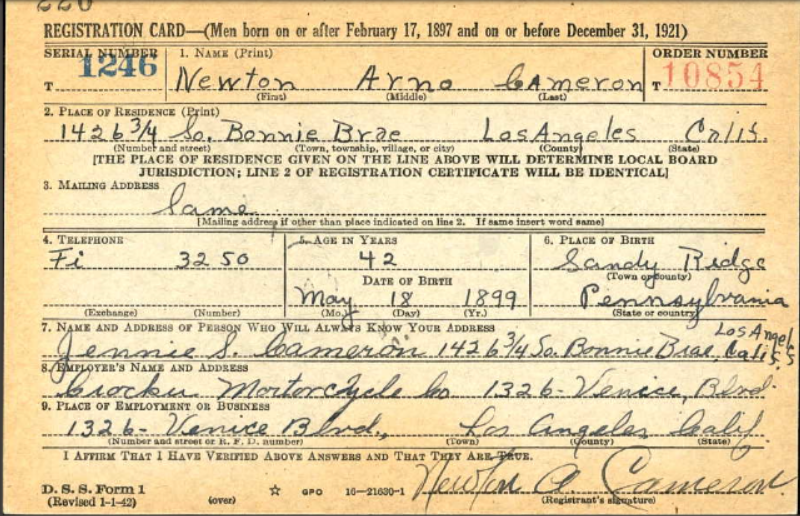 226
REGISTRATION CARD—(Men born on or after February 17, 1897 and on or before December 31, 1921)
SERIAL NUMBER 1. NAME (Print) ORDER NUMBER
T 1246 Newton Arno Cameron T 10854
(First) (Middle) (Last)
2. PLACE OF RESIDENCE (Print)
1426 3/4 So. Bonnie Brae Los Angeles Calif.
(Number and street) (Town, township, village, or city) (County) (State)
[THE PLACE OF RESIDENCE GIVEN ON THE LINE ABOVE WILL DETERMINE LOCAL BOARD
JURISDICTION; LINE 2 OF REGISTRATION CERTIFICATE WILL BE IDENTICAL]
3. MAILING ADDRESS
Same
[Mailing address if other than place indicated on line 2. If same insert word same]
4. TELEPHONE 5. AGE IN YEARS 6. PLACE OF BIRTH
Fi 3250 42 Sandy Ridge
DATE OF BIRTH (Town or county)
May 18 1899 Pennsylvania
(Exchange) (Number) (Mo.) (Day) (Yr.) (State or country)
7. NAME AND ADDRESS OF PERSON WHO WILL ALWAYS KNOW YOUR ADDRESS
Jennie S. Cameron 1426 3/4 So. Bonnie Brae, Los Angeles Calif.
8. EMPLOYER'S NAME AND ADDRESS
Crocker Mortorcycle Co 1326- Venice, Blvd.
9. PLACE OF EMPLOYMENT OR BUSINESS
1326- Venice Blvd., Los Angeles, Calif
(Number and street or R. F. D. number) (Town) (County) (State)
I AFFIRM THAT I HAVE VERIFIED ABOVE ANSWERS AND THAT THEY ARE TRUE.
Newton A. Cameron
D. S. S. Form 1 (over) ☆ GPO 16—21630-1 (Registrant's signature)
(Revised 1-1-42)